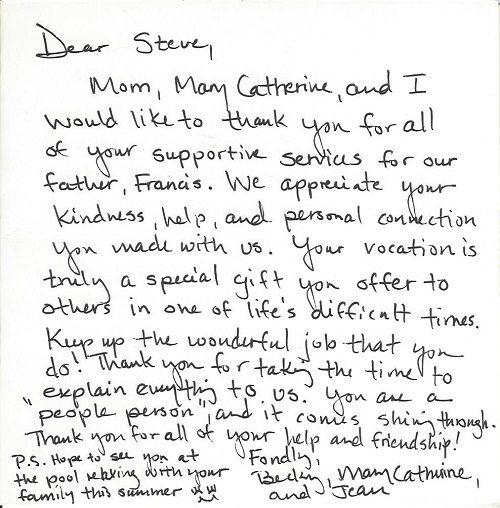 Dear Steve,
Mom, Mary Catherine, and I
would like to thank you for all
of your supportive services for our
father, Francis. We appreciate your
kindness, help, and personal connection
you made with us. Your vocation is
truly a special gift you offer to
others in one of life's difficult times.
Keep up the wonderful job that you
do! Thank you for taking the time to
explain everything to us. You are a
"people person", and it comes shining through.
Thank you for all of your help and friendship!
Fondly,
Becky, Mary Catherine,
and Jean
P.S. Hope to see you at
the pool relaxing with your
family this summer